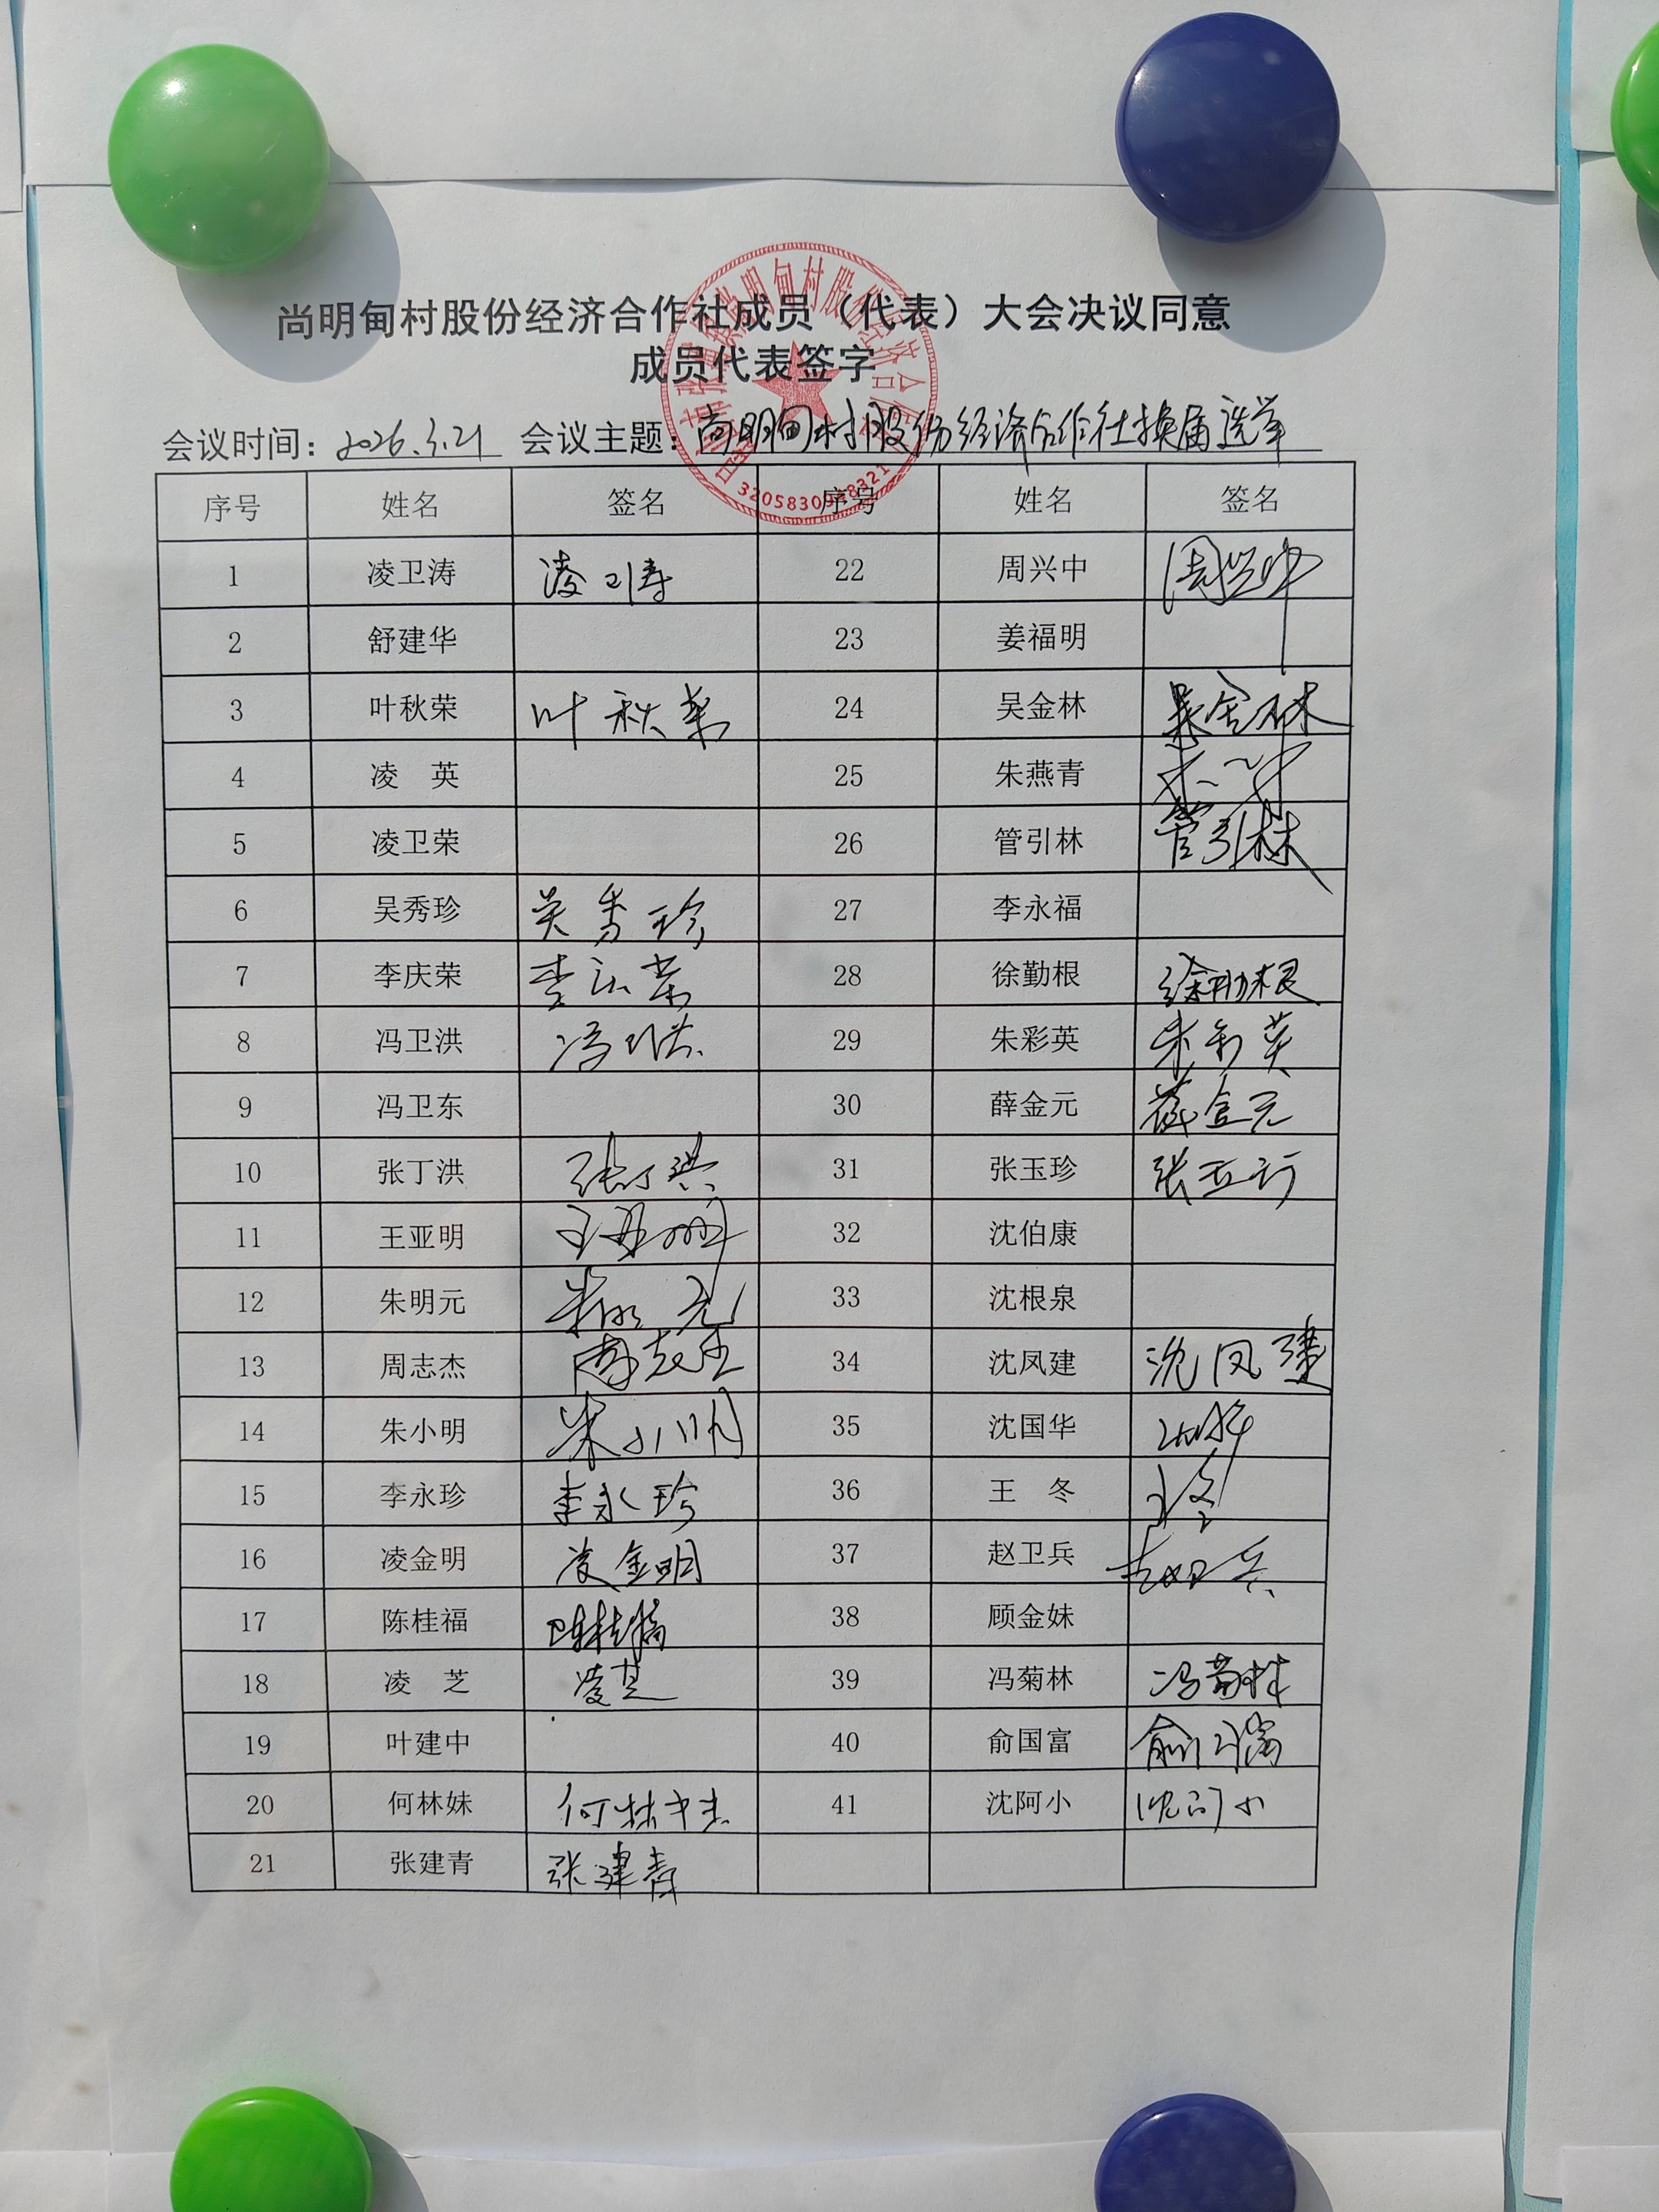 尚明甸村股份经济合作社成员（代表）大会决议同意
成员代表签字
会议时间：2026.3.21 会议主题：尚明甸村股份经济合作社换届选举
序号 姓名 签名 序号 姓名 签名
1 凌卫涛 凌卫涛 22 周兴中 周兴中
2 舒建华 23 姜福明
3 叶秋荣 叶秋荣 24 吴金林 吴金林
4 凌 英 25 朱燕青
5 凌卫荣 26 管引林 管引林
6 吴秀珍 吴秀珍 27 李永福
7 李庆荣 李庆荣 28 徐勤根 徐勤根
8 冯卫洪 冯卫洪 29 朱彩英 朱彩英
9 冯卫东 30 薛金元 薛金元
10 张丁洪 张丁洪 31 张玉珍 张玉珍
11 王亚明 王亚明 32 沈伯康
12 朱明元 朱明元 33 沈根泉
13 周志杰 周志杰 34 沈凤建 沈凤建
14 朱小明 朱小明 35 沈国华
15 李永珍 李永珍 36 王 冬 王冬
16 凌金明 凌金明 37 赵卫兵 赵卫兵
17 陈桂福 陈桂福 38 顾金妹
18 凌 芝 凌芝 39 冯菊林 冯菊林
19 叶建中 40 俞国富 俞国富
20 何林妹 何林妹 41 沈阿小 沈阿小
21 张建青 张建青